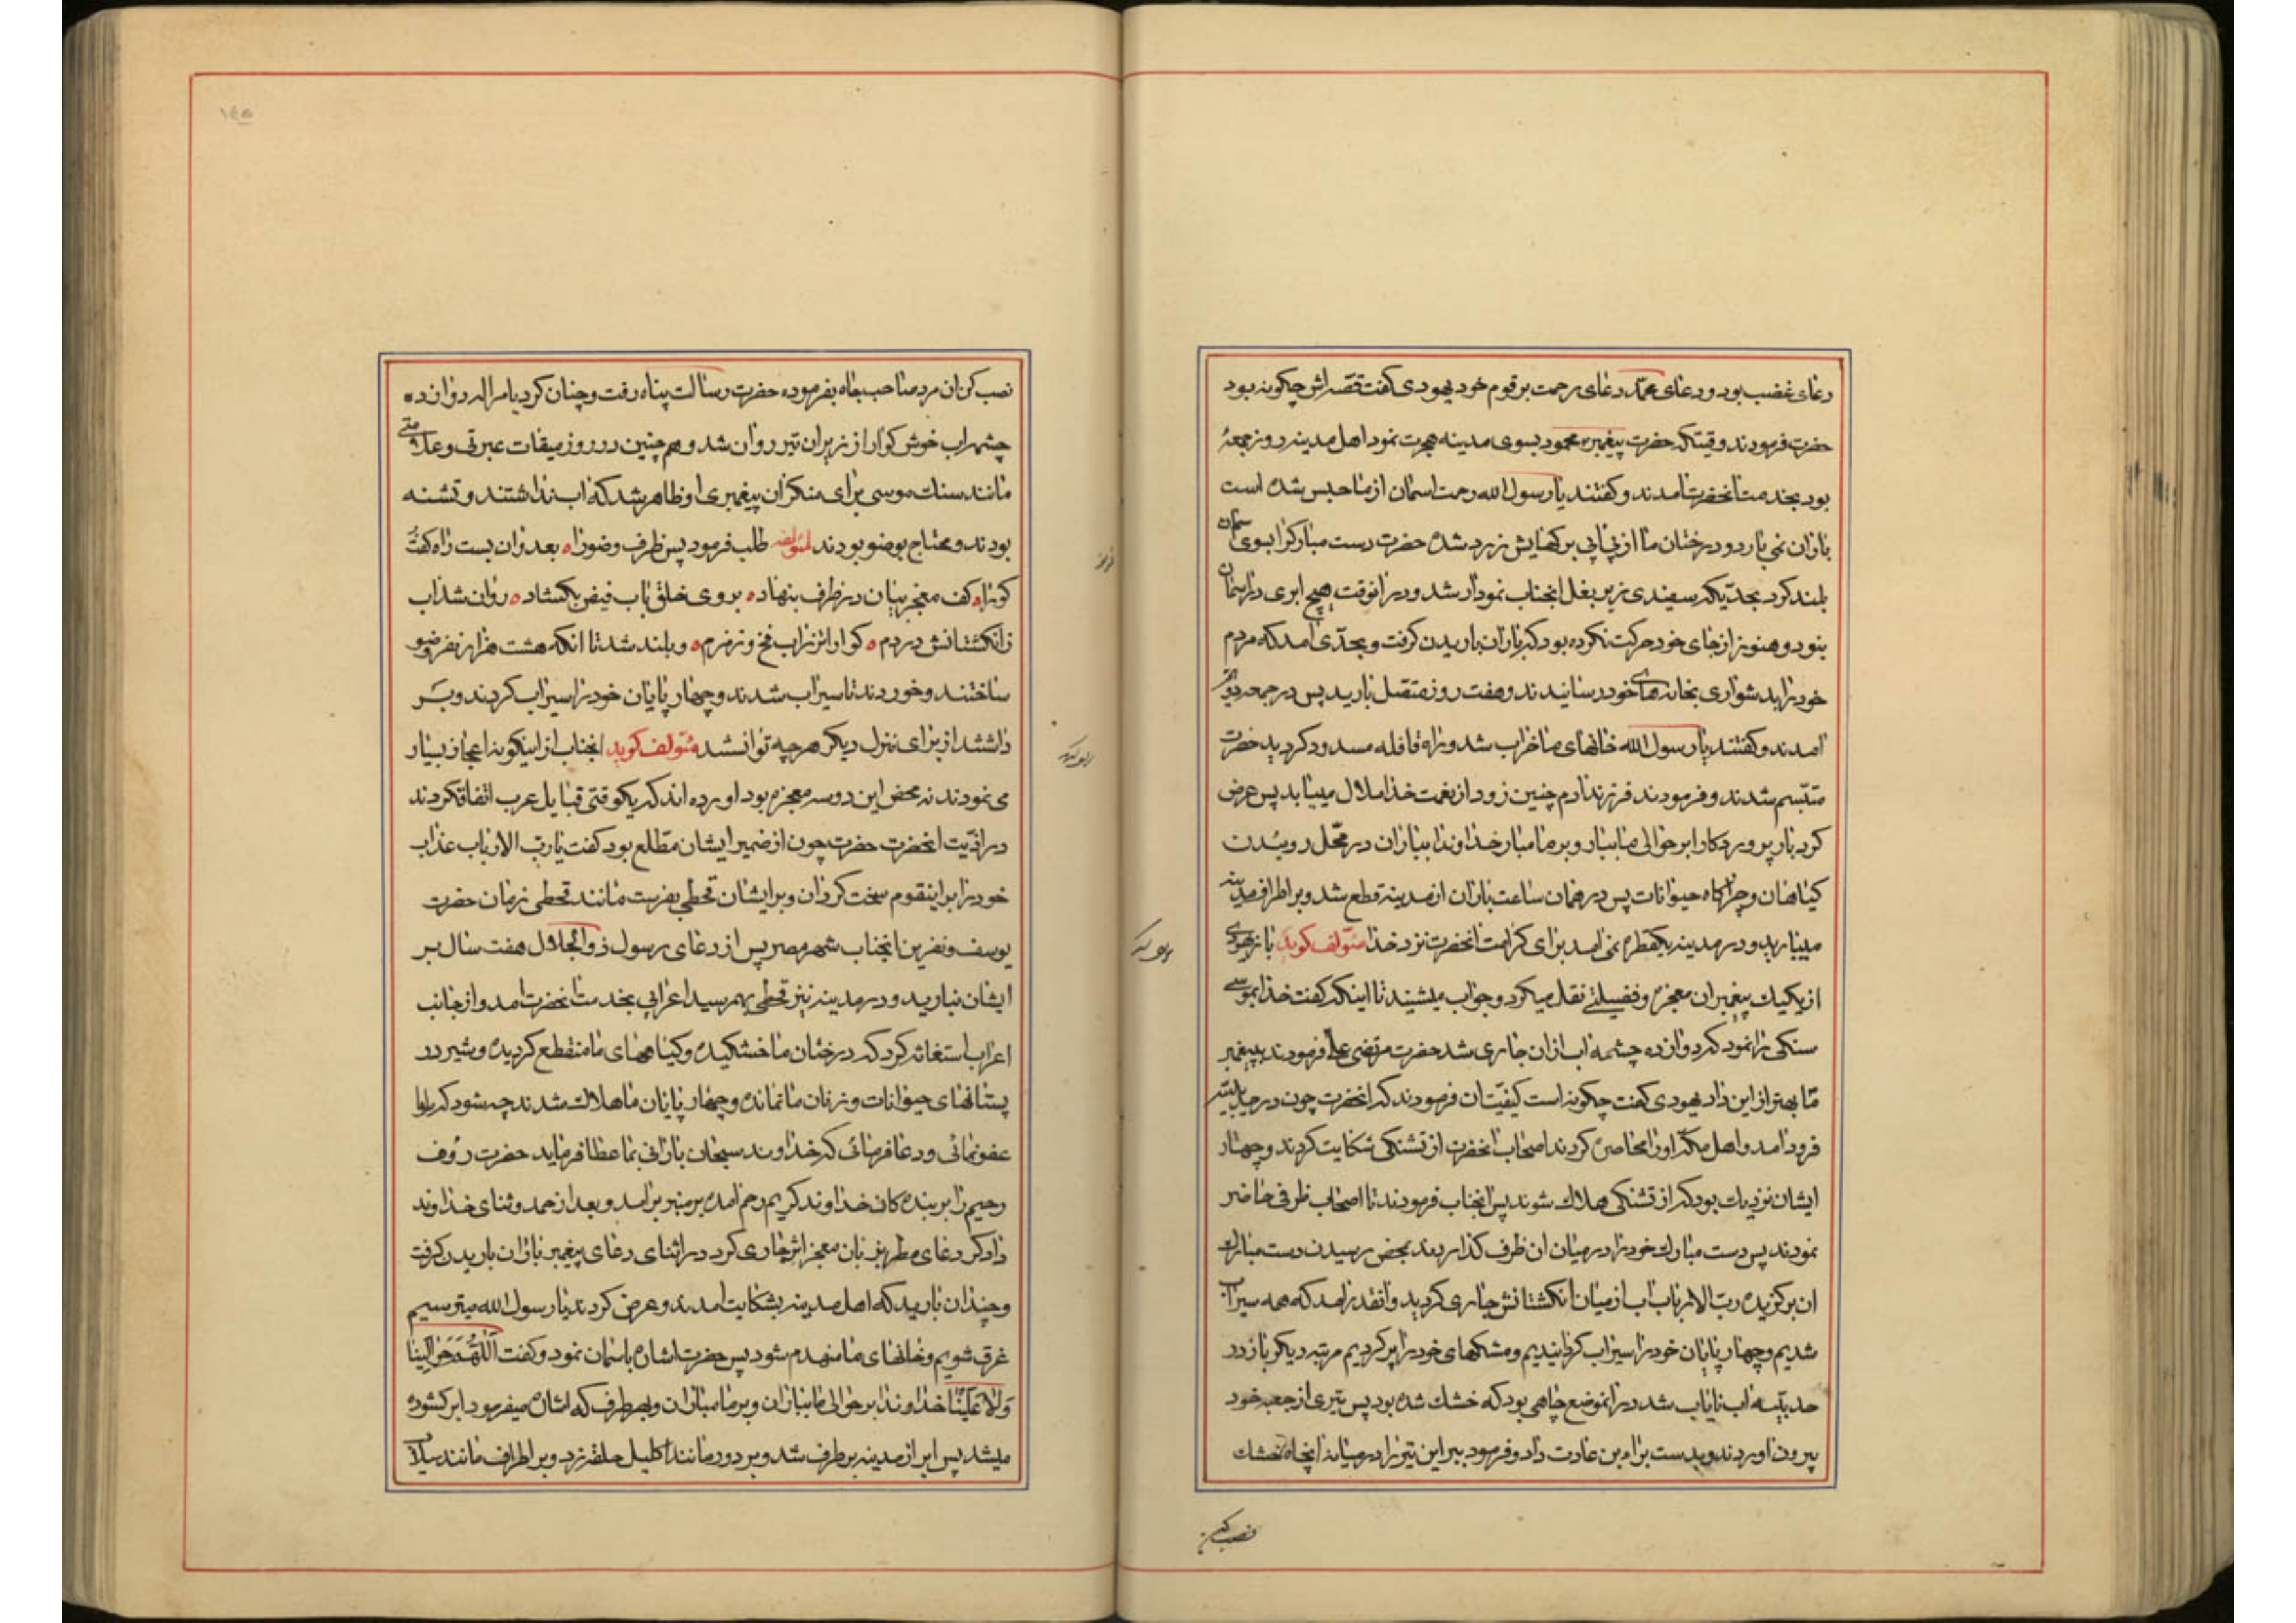 دعای غضب بود و دعای محمد دعای رحمت بر قوم خود یهودی کفت قصه اش چکونه بود
حضرت فرمودند وقتیکه حضرت پیغمبر محمود بسوی مدینه هجرت نمود اهل مدینه در روز جمعهٔ
بود بخدمت انحضرت امدند و کفتند یا رسول الله رحمت اسمان از ما حبس شده است
باران نمی بارد و درختان ما از بی ابی برکهایش زرد شده حضرت دست مبارکرا بسوی اسمان
بلند کرد بحدیکه سفیدی زیر بغل انجناب نمودار شد و در انوقت هیچ ابری در اسمان
بنود و هنوز از جای خود حرکت نکرده بود که باران باریدن کرفت و بحدی امد که مردم
خود را بدشواری بخانه های خود رسانیدند و هفت روز متصل بارید پس در جمعه دویم
امدند و کفتند یا رسول الله خانهای ما خراب شد و راه قافله مسدود کردید حضرت
متبسم شدند و فرمودند فرزند ادم چنین زود از نعمت خدا ملال مییابد پس عرض
کرد بار پروردکارا بر حوالی ما ببار و بر ما مبار خداوندا بباران در محل روئیدن
کیاهان و چراکاه حیوانات پس در همان ساعت باران از مدینه قطع شد و بر اطراف مدینه
میبارید و در مدینه یکقطره نمی امد برای کرامت انحضرت نزد خدا مئولف کوید باز یهودی
از یکیک پیغمبران معجزه و فضیلتی نقل میکرد و جواب میشنید تا اینکه کفت خدا بموسی
سنکی را نمود کرد و ان ده چشمه اب ازان جاری شد حضرت مرتضی علی فرمودند پیغمبر
ما بهتر از این داد یهودی کفت چکونه است کیفیت ان فرمودند که انحضرت چون در حدیبیه
فرود امد و اهل مکه او را محاصره کردند اصحاب انحضرت از تشنکی شکایت کردند و چهار
ایشان نزدیک بود که از تشنکی هلاک شوند پس انجناب فرمودند تا اصحاب ظرفی حاضر
نمودند پس دست مبارک خود را در میان ان ظرف کذاردند بمحض رسیدن دست مبارک
ان برکزیده رب الارباب اب از میان انکشتانش جاری کردید و انقدر امد که همه سیراب
شدیم و چهار پایان خود را سیراب کردانیدیم و مشکهای خود را پر کردیم مرتبه دیکر باز در
حدیبیه اب نایاب شد در انموضع چاهی بود که خشک شده بود پس تیری از جعبه خود
بیرون اوردند و بدست براء بن عازب داد و فرمود ببر این تیر را در میانه انچاه خشک
نصب کن
نصب کن ان مرد صاحب جاه بفرموده حضرت رسالت پناه رفت و چنان کرد بامر اله دوازده
چشمه اب خوش کوارا از زیر ان تیر روان شد و هم چنین در روز میقات عبرتی و علامتی
مانند سنک موسی برای منکران پیغمبری او ظاهر شد که اب نداشتند و تشنه
بودند و محتاج بوضو بودند لمئولفه طلب فرمود پس ظرف وضو را بعد زان بست راه کفت
کو را کف معجز بیان در ظرف بنهاد بروی خلق باب فیض بکشاد روان شد اب
زانکشتانش در دم کواراتر ز اب فخ و زمزم و بلند شد تا انکه هشت هزار نفر وضو
ساختند و خوردند تا سیراب شدند و چهار پایان خود را سیراب کردند و بر
داشتند از برای منزل دیکر هر چه توانستند مئولف کوید انجناب از اینکونه اعجاز بسیار
می نمودند نه محض این دو سه معجزه بود اورده اند که یکوقتی قبایل عرب اتفاق کردند
در اذیت انحضرت حضرت چون از ضمیر ایشان مطلع بود کفت یا رب الارباب عذاب
خود را بر اینقوم سخت کردان و بر ایشان قحطی بفرست مانند قحطی زمان حضرت
یوسف و نفرین انجناب شهر مصر پس از دعای رسول ذو الجلال هفت سال بر
ایشان نبارید و در مدینه نیز قحطی بهم رسید اعرابی بخدمت انحضرت امد و از جانب
اعراب استغاثه کرد که درختان ما خشکیده و کیاههای ما منقطع کردیده و شیر در
پستانهای حیوانات و زنان ما نمانده و چهار پایان ما هلاک شدند چه شود که ما را
عفو نمائی و دعا فرمائی که خداوند سبحان بارانی بما عطا فرماید حضرت رؤف
رحیم را بر بنده کان خداوند کریم رحم امده بر منبر برامد و بعد از حمد و ثنای خداوند
دادکر دعای مطر بزبان معجز اثر جاری کرد در اثنای دعای پیغمبر باران باریدن کرفت
و چندان بارید که اهل مدینه بشکایت امدند و عرض کردند یا رسول الله میترسیم
غرق شویم و خانهای ما منهدم شود پس حضرت اشاره باسمان نمود و کفت اللهم حوالینا
ولا علینا خداوندا بر حوالی ما بباران و بر ما مباران و بهر طرف که اشاره میفرمود ابر کشوده
میشد پس ابر از مدینه بر طرف شد و بر دور مانند اکلیل حلقه زد و بر اطراف مانند سیلاب